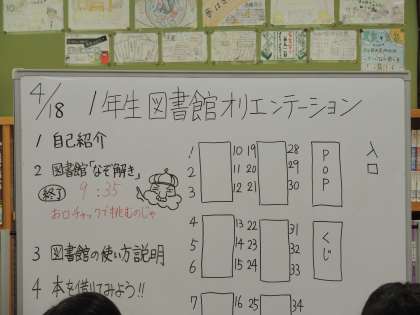 4/18 1年生図書館オリエンテーション
1 自己紹介
2 図書館「なぞ解き」
終了 9:35
お口チャックで挑むのじゃ
3 図書館の使い方説明
4 本を借りてみよう!!
1 10 19 28
2 11 20 29
3 12 21 30
POP
入口
4 13 22 31
5 14 23 32
6 15 24 33
くじ
7 16 25 34